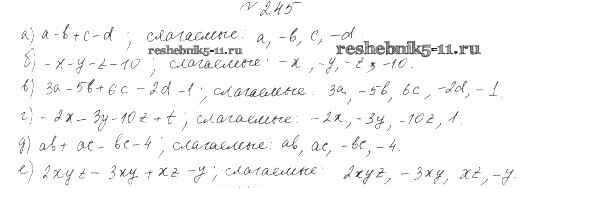 № 245
а) a-b+c-d ; слагаемые: a, -b, c, -d
reshebnik5-11.ru reshebnik5-11.ru
б) -x-y-z-10 ; слагаемые: -x, -y, -z, -10.
в) 3a-5b+6c-2d-1; слагаемые: 3a, -5b, 6c, -2d, -1.
г) -2x-3y-10z+t; слагаемые: -2x, -3y, -10z, 1.
д) ab+ac-bc-4; слагаемые: ab, ac, -bc, -4.
е) 2xyz-3xy+xz-y; слагаемые: 2xyz, -3xy, xz, -y.